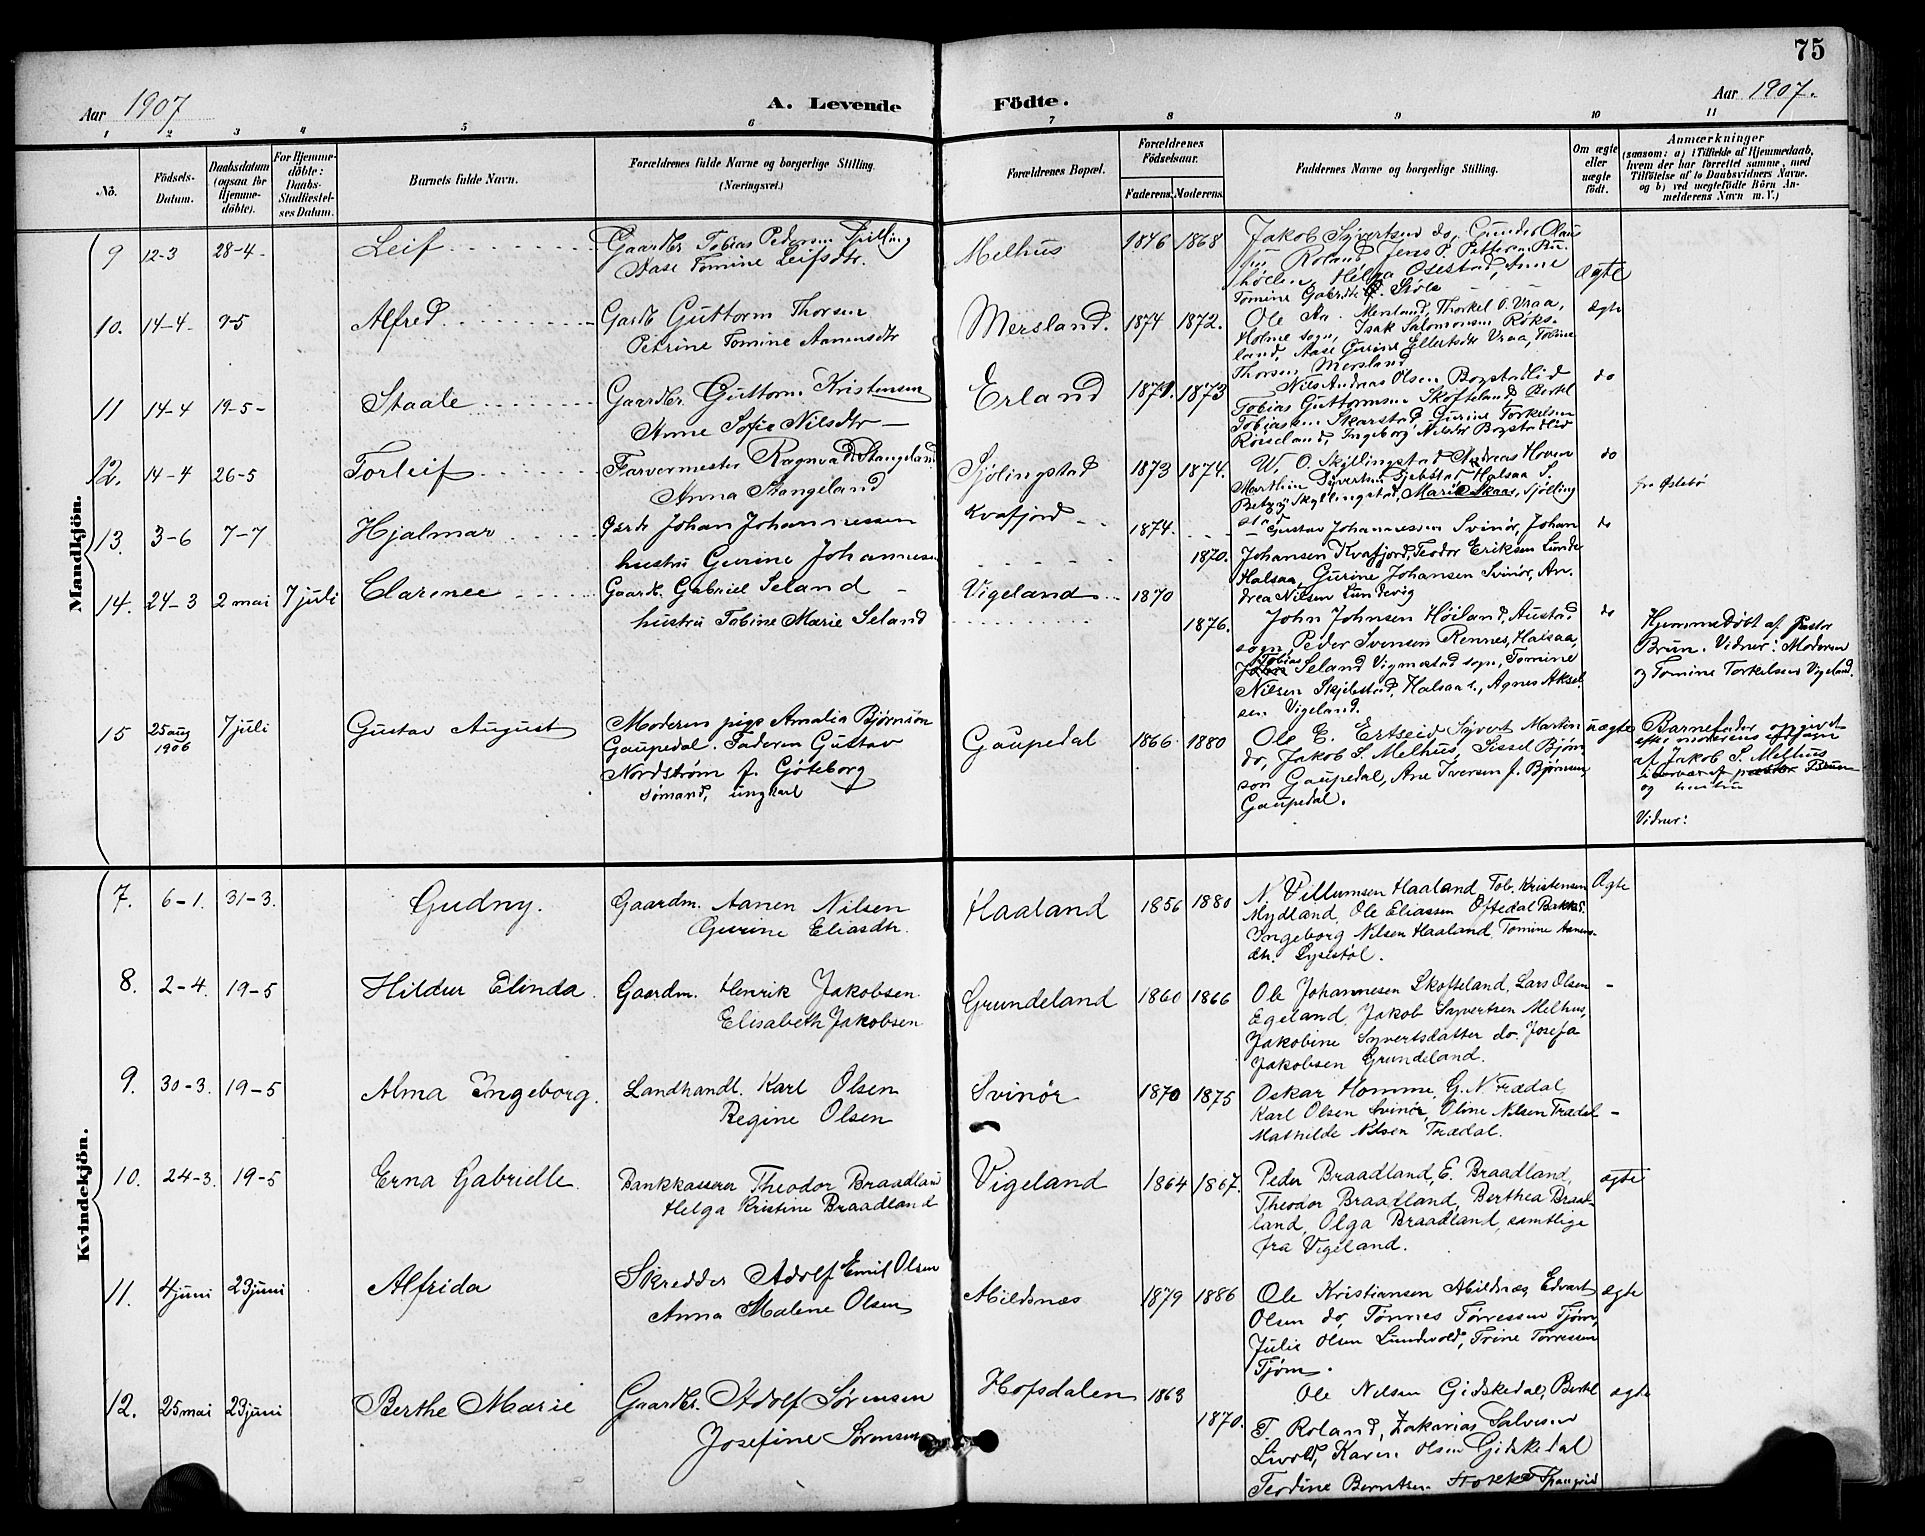 75
Aar 1907
A. Levende
Födte.
Aar 1907.
1 2 3 4 5 6 7 8 9 10 11
Nö.
Födsels-
Datum.
Daabsdatum
(ogsaa for
Hjemme-
döbte).
For Hjemme-
döbte:
Daabs-
Stadfæstel-
ses Datum.
Barnets fulde Navn.
Forældrenes fulde Navne og borgerlige Stilling.
(Næringsvei.)
Forældrenes Bopæl.
Forældrenes
Födselsaar.
Faderens. Moderens.
Faddernes Navne og borgerlige Stilling.
Om ægte
eller
uægte
födt.
Anmærkninger
(saasom: a) i Tilfælde af Hjemmedaab,
hvem der har forrettet samme, med
Tilföielse af to Daabsvidners Navne,
og b) ved uægtefödte Börn An-
melderens Navn m. V.)
Mandkjön.
9 12-3 28-4- Leif
Gaardbr Tobias Pedersen
Aase Tomine Leifsdtr.
Melhus 1846 1868
Jakob Syvertsen do, Gunder Olaus
Roland Jens P. Pettersen
Helga Osestad, Anne
Tomine Gabrdtr Skole
ægte
10. 14-4. 9-5 Alfred
Gardb Guttorm Thorsen
Petrine Tomine Aanensdtr
Mersland. 1874 1872.
Ole An. Mersland, Thorkel O. Vraa,
Holme sogn, Isak Salomonsen Røks-
land, Aase Gurine Ellertsdtr Vraa, Tobine
Thorsen Mersland
ægte
11 14-4 19-5- Staale
Gaardbr. Guttorm Kristensen
Anne Sofie Nilsdtr
Erland 1871. 1873
Nils Andreas Olsen Bogstadlid
Tobias Guttormsen Skofteland Bertel
Tobiassen Skarstad, Gurine Torkelsen
Røiseland, Ingeborg Nilsdtr Bogstadlid
do
12. 14-4 26-5 Torleif
Farvermester Ragnvald Stangeland
Anna Stangeland
Sjølingstad 1873 1874.
W. O. Skjllingstad Andreas Hoven
Marthin Syvertsen Skjebstad Halsaa S.
Betzy Skyllingstad, Marie Skaar, Sjølling
stad
do
fra Øslebø
13. 3-6 7-7 Hjalmar
Gardb Johan Johannessen
hustru Gurine Johannesen
Kvafjord 1874. 1870.
Gustav Johannessen Svinør, Johan
Johansen Kvafjord, Teodor Eriksen Lunde
Halsaa, Gurine Johansen Svinør, An-
drea Nilsen Lundevig
do
14. 24-3 2 mai 7 juli Clarence
Gaardb. Gabriel Seland
hustru Tobine Marie Seland
Vigeland 1870 1876.
John Johnsen Høiland, Austad
sogn, Peder Svensen Rennes, Halsaa,
Tobias
John Seland Vigmostad sogn, Tomine
Nilsen Skjebstad, Halsaa s., Agnes Aksel-
sen Vigeland.
do
Hjemmedøbt af Pastor
Brun. Vidner: Moderen
og Tomine Torkelsen Vigeland.
15 25 aug
1906 7 juli Gustav August
Moderen pige Amalia Bjørnson
Gaupedal. Faderen Gustav
Nordstrøm f. Göteborg
sømand, ungkarl
Gaupedal 1866 1880
Ole E. Ertseid Syvert Martin
do, Jakob S. Melhus, Sissel Bjørn
son Gaupedal, Ane Iversen f. Bjørnsen,
Gaupedal.
uægte
Barnefader opgivet
efter moderens opgave
af Jakob S. Melhus
pastor Brun
og hustru
Vidner:
Kvindekjön.
7. 6-1. 31-3. Gudny.
Gaardm. Aanen Nilsen
Gurine Eliasdtr.
Haaland 1856 1880
N. Villumsen Haaland, Tob. Kristensen
Mydland, Ole Eliassen Øftedal Bakke S.
Ingeborg Nilsen Haaland, Tomine Aanens-
dtr. Lyselstøl.
Ægte
8. 2-4. 19-5 Hildur Elinda.
Gaardm. Henrik Jakobsen
Elisabeth Jakobsen
Grundeland 1860 1866
Ole Johannesen Skofteland, Lars Olsen
Egeland, Jakob Syvertsen Melhus,
Jakobine Syvertsdatter do. Josefa
Jakobsen Grundeland.
-
9. 30-3. 19-5 Alma Ingeborg.
Landhandl. Karl Olsen
Regine Olsen
Svinör 1870 1875
Oskar Homme, G. N. Frædal
Karl Olsen Svinör, Oline Nilsen Trædal
Mathilde Nilsen Trædal.
-
10. 24-3. 19-5 Erna Gabrielle.
Bankkasserer Theodor Braadland
Helga Kristine Braadland
Vigeland 1864 1867.
Peder Braadland, E. Braadland,
Theodor Braadland, Berthea Braad-
land, Olga Braadland, samtlige
fra Vigeland.
ægte
11. 4 juni 23 juni Alfrida
Skredder Adolf Emil Olsen
Anna Malene Olsen
Mildsnæs 1879 1886
Ole Kristiansen Mildnæs, Edvart
Olsen do, Tønnes Tørressen Tjøm,
Julie Olsen Lundevold, Trine Tørressen
Tjøm.
ægte
12. 25 mai 23 juni Berthe Marie
Gaardbr. Adolf Sørensen
Josefine Sørensen
Hofsdalen 1863 1870.
Ole Nilsen Gidskedal, Bertel
T. Roland, Zakarias Salvesen
Livold, Karen Olsen Gidskedal
Terdine Berntsen Stokke Spangreid
ægte